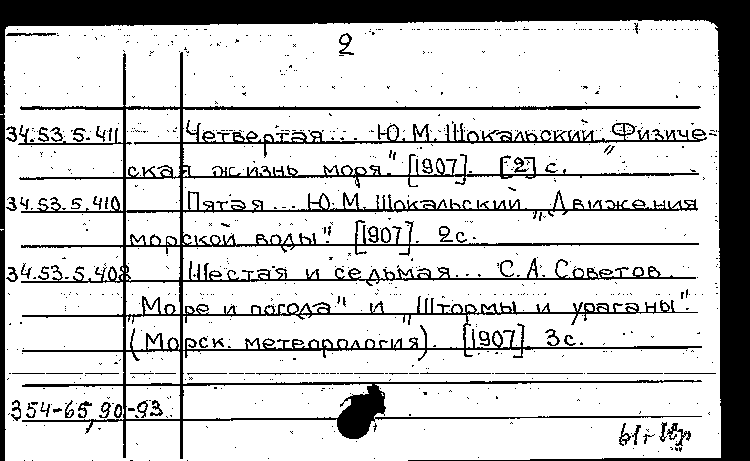 2
34.53.5.411 Четвертая... Ю.М. Шокальский „Физиче-
ская жизнь моря." [1907]. [2] с.
34.53.5.410 Пятая... Ю.М. Шокальский „Движения
морской воды". [1907]. 2с.
34.53.5.408 Шестая и седьмая... С.А. Советов.
„Море и погода" и „Штормы и ураганы".
(Морск. метеорология). [1907]. 3с.
354-65,90-93